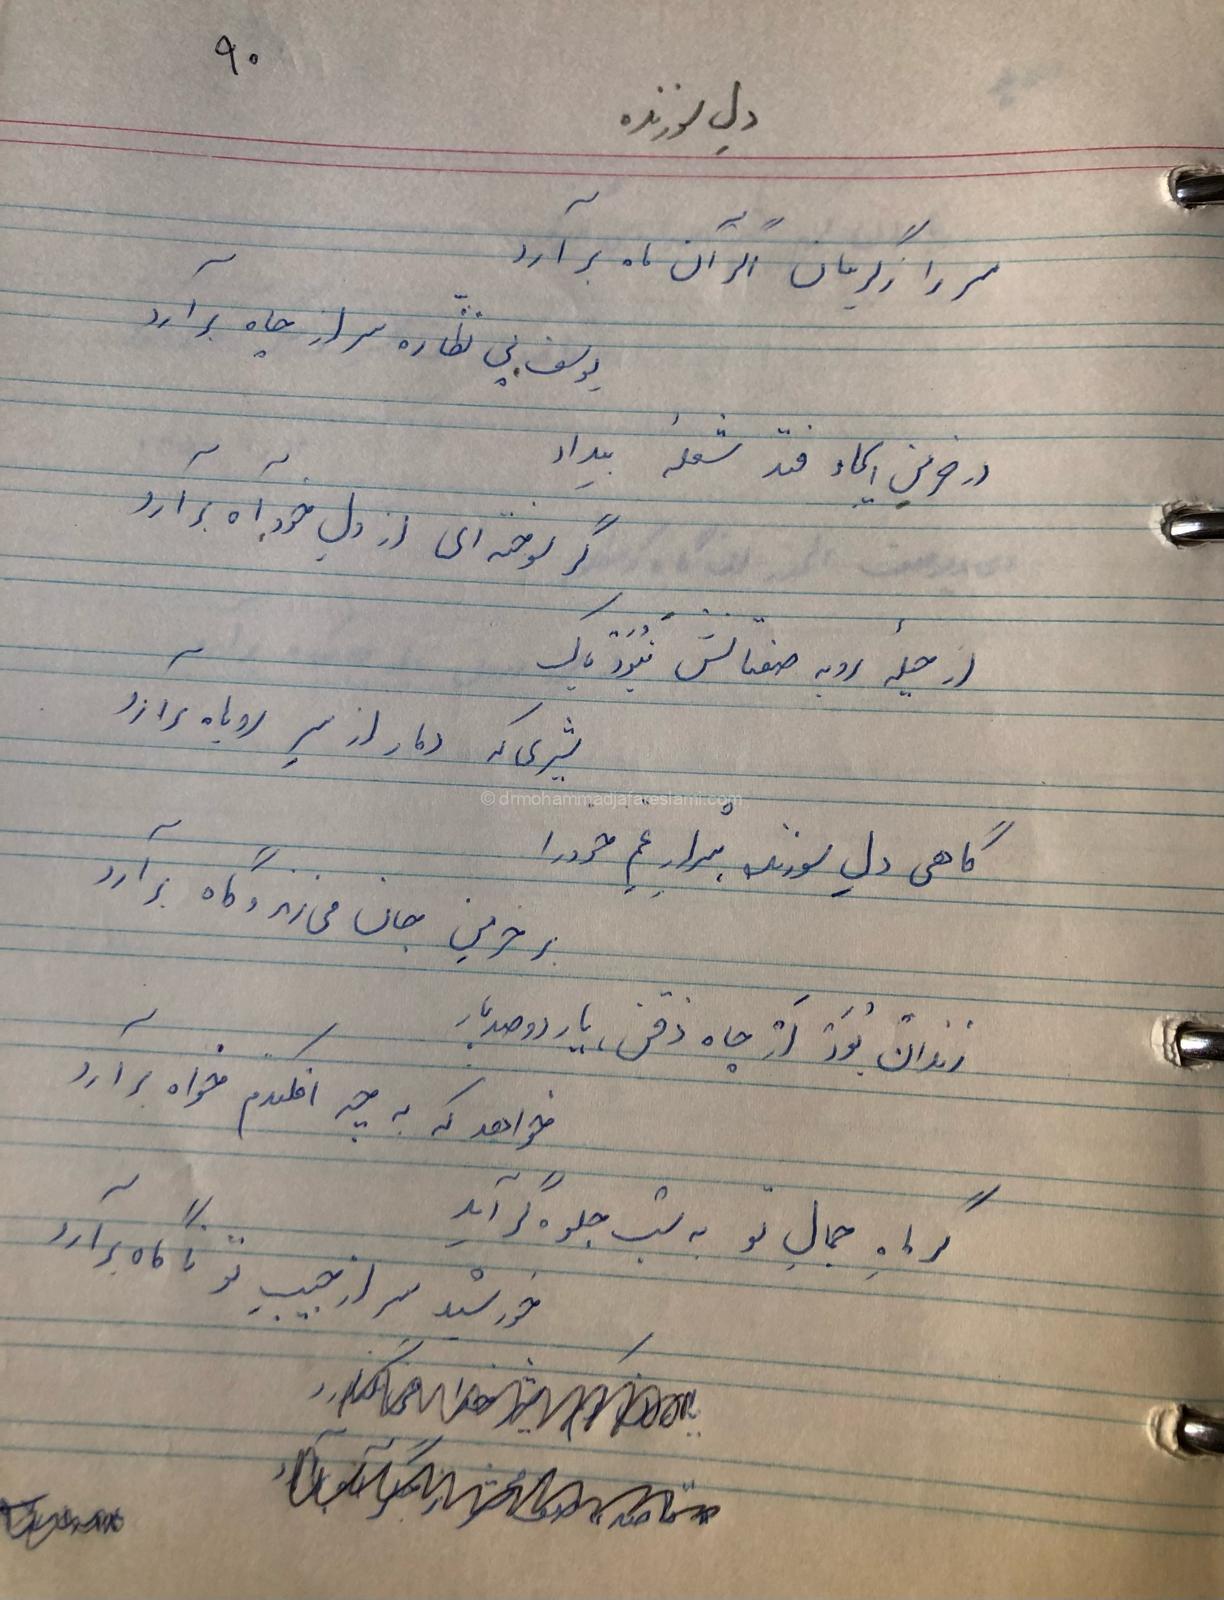 ۹۰
دلِ سوزنده
سر را ز گریبان اگر آن ماه بر آرد
یوسف پیِ نظّاره سر از چاه برآرد
در خرمنِ ایماء فتد شعلهٔ بیداد
گر سوخته ای از دلِ خود آه برآرد
از حیلهٔ روبه صفتانش نَبُوَد باک
شیری که دمار از سرِ روباه برآرد
گاهی دلِ سوزنده شرارِ غمِ خود را
بر خرمنِ جان می زند و گاه برآرد
زندان بُوَد ار چاه ذقن، یار دو صد بار
خواهد که به چه افکندم خواه برآرد
گر ماهِ جمالِ تو به شب جلوه گر آید
خورشید سر از جیبِ تو ناگاه برآرد
© drmohammadjafareslami.com